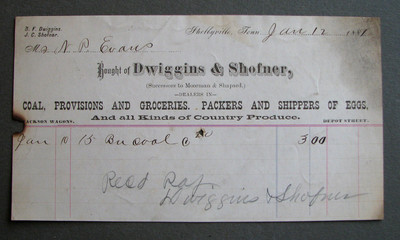 S. F. Dwiggins.
J. C. Shofner.
Shelbyville, Tenn. Jan 12 1881
Mr N. P. Evans
Bought of Dwiggins & Shofner,
(Successors to Mooreman & Shapard,)
—DEALERS IN—
COAL, PROVISIONS AND GROCERIES. PACKERS AND SHIPPERS OF EGGS,
And all Kinds of Country Produce.
JACKSON WAGONS. DEPOT STREET.
Jan 10 15 Bu coal 300
Recd Pay
Dwiggins & Shofner